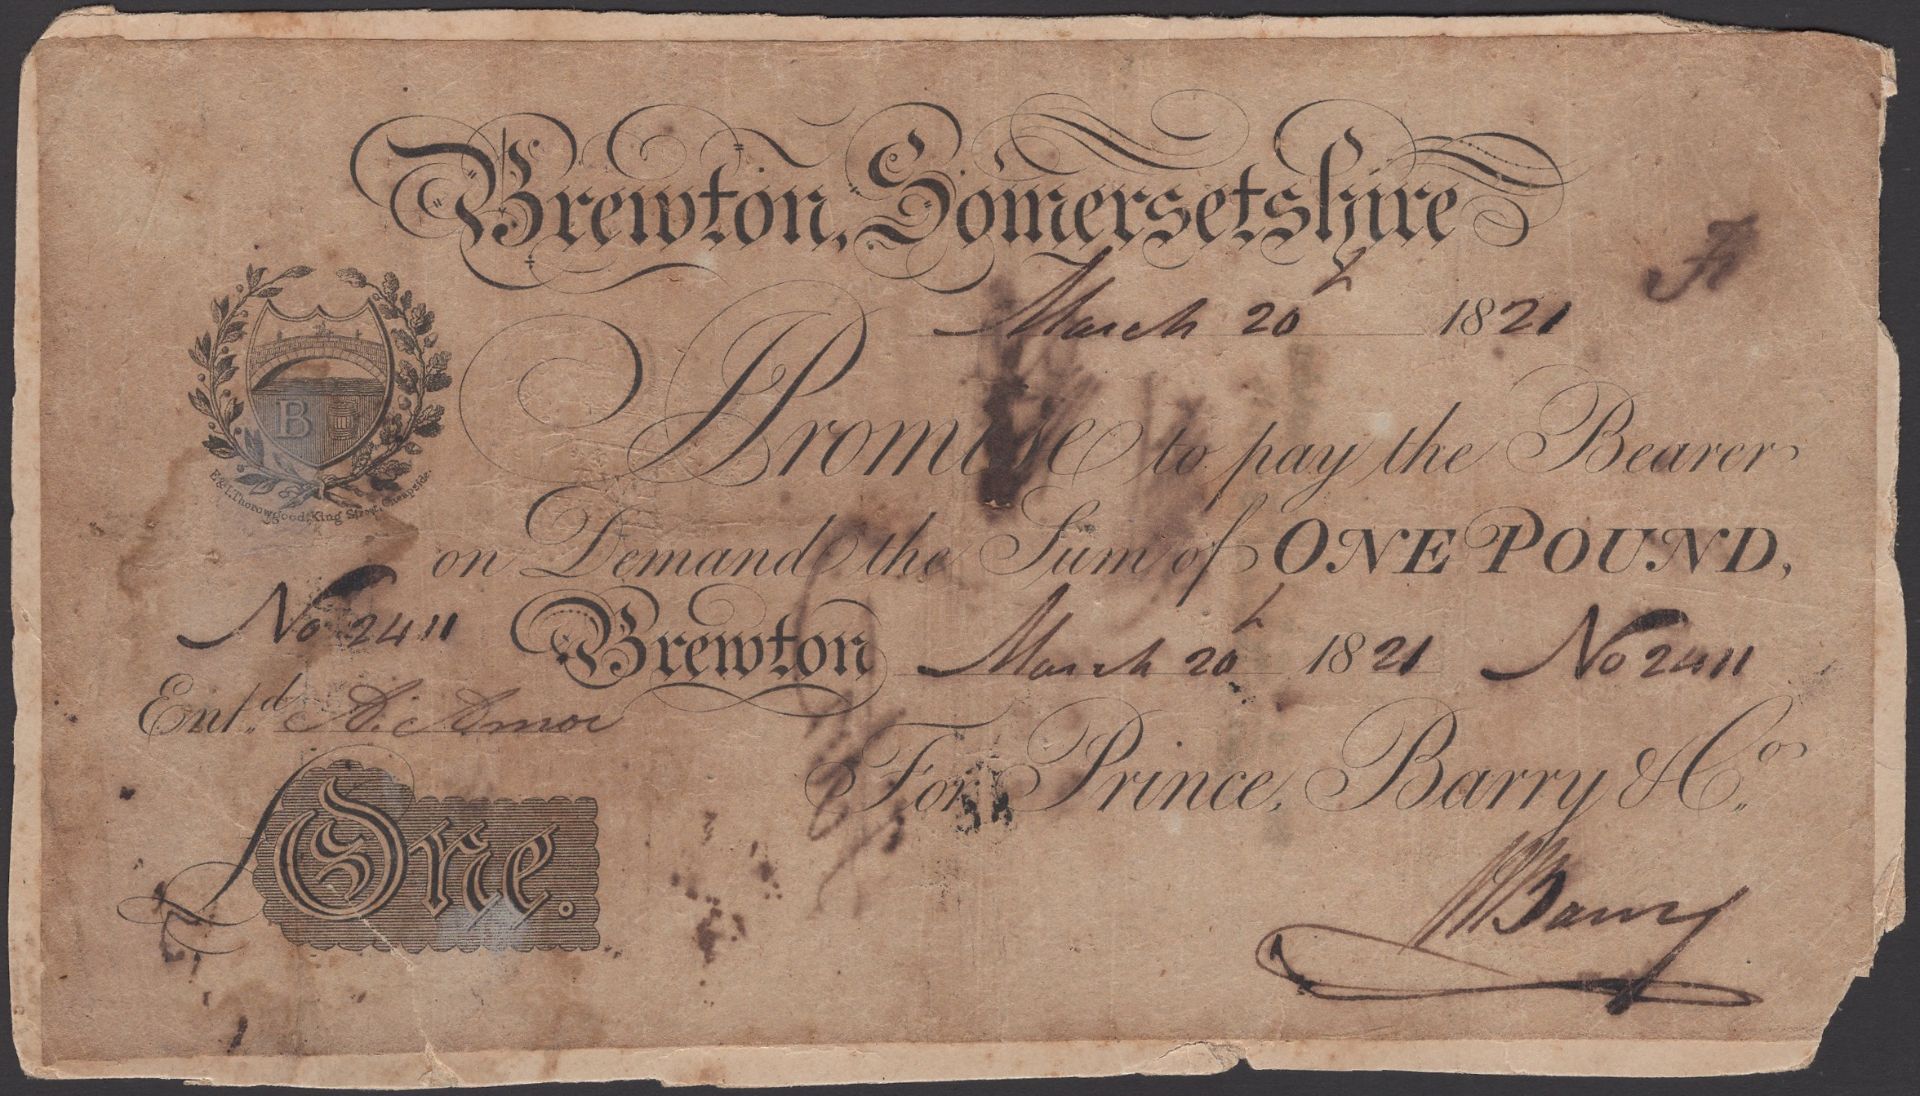 Brewton, Somersetshire
March 20th 1821
I Promise to pay the Bearer
on Demand the Sum of ONE POUND,
No 2411 Brewton March 20th 1821 No 2411
Entd. A. Amor
For Prince, Barry & Co.
£ One.
Barry
B
E & I. Thorowgood, King Street, Cheapside.